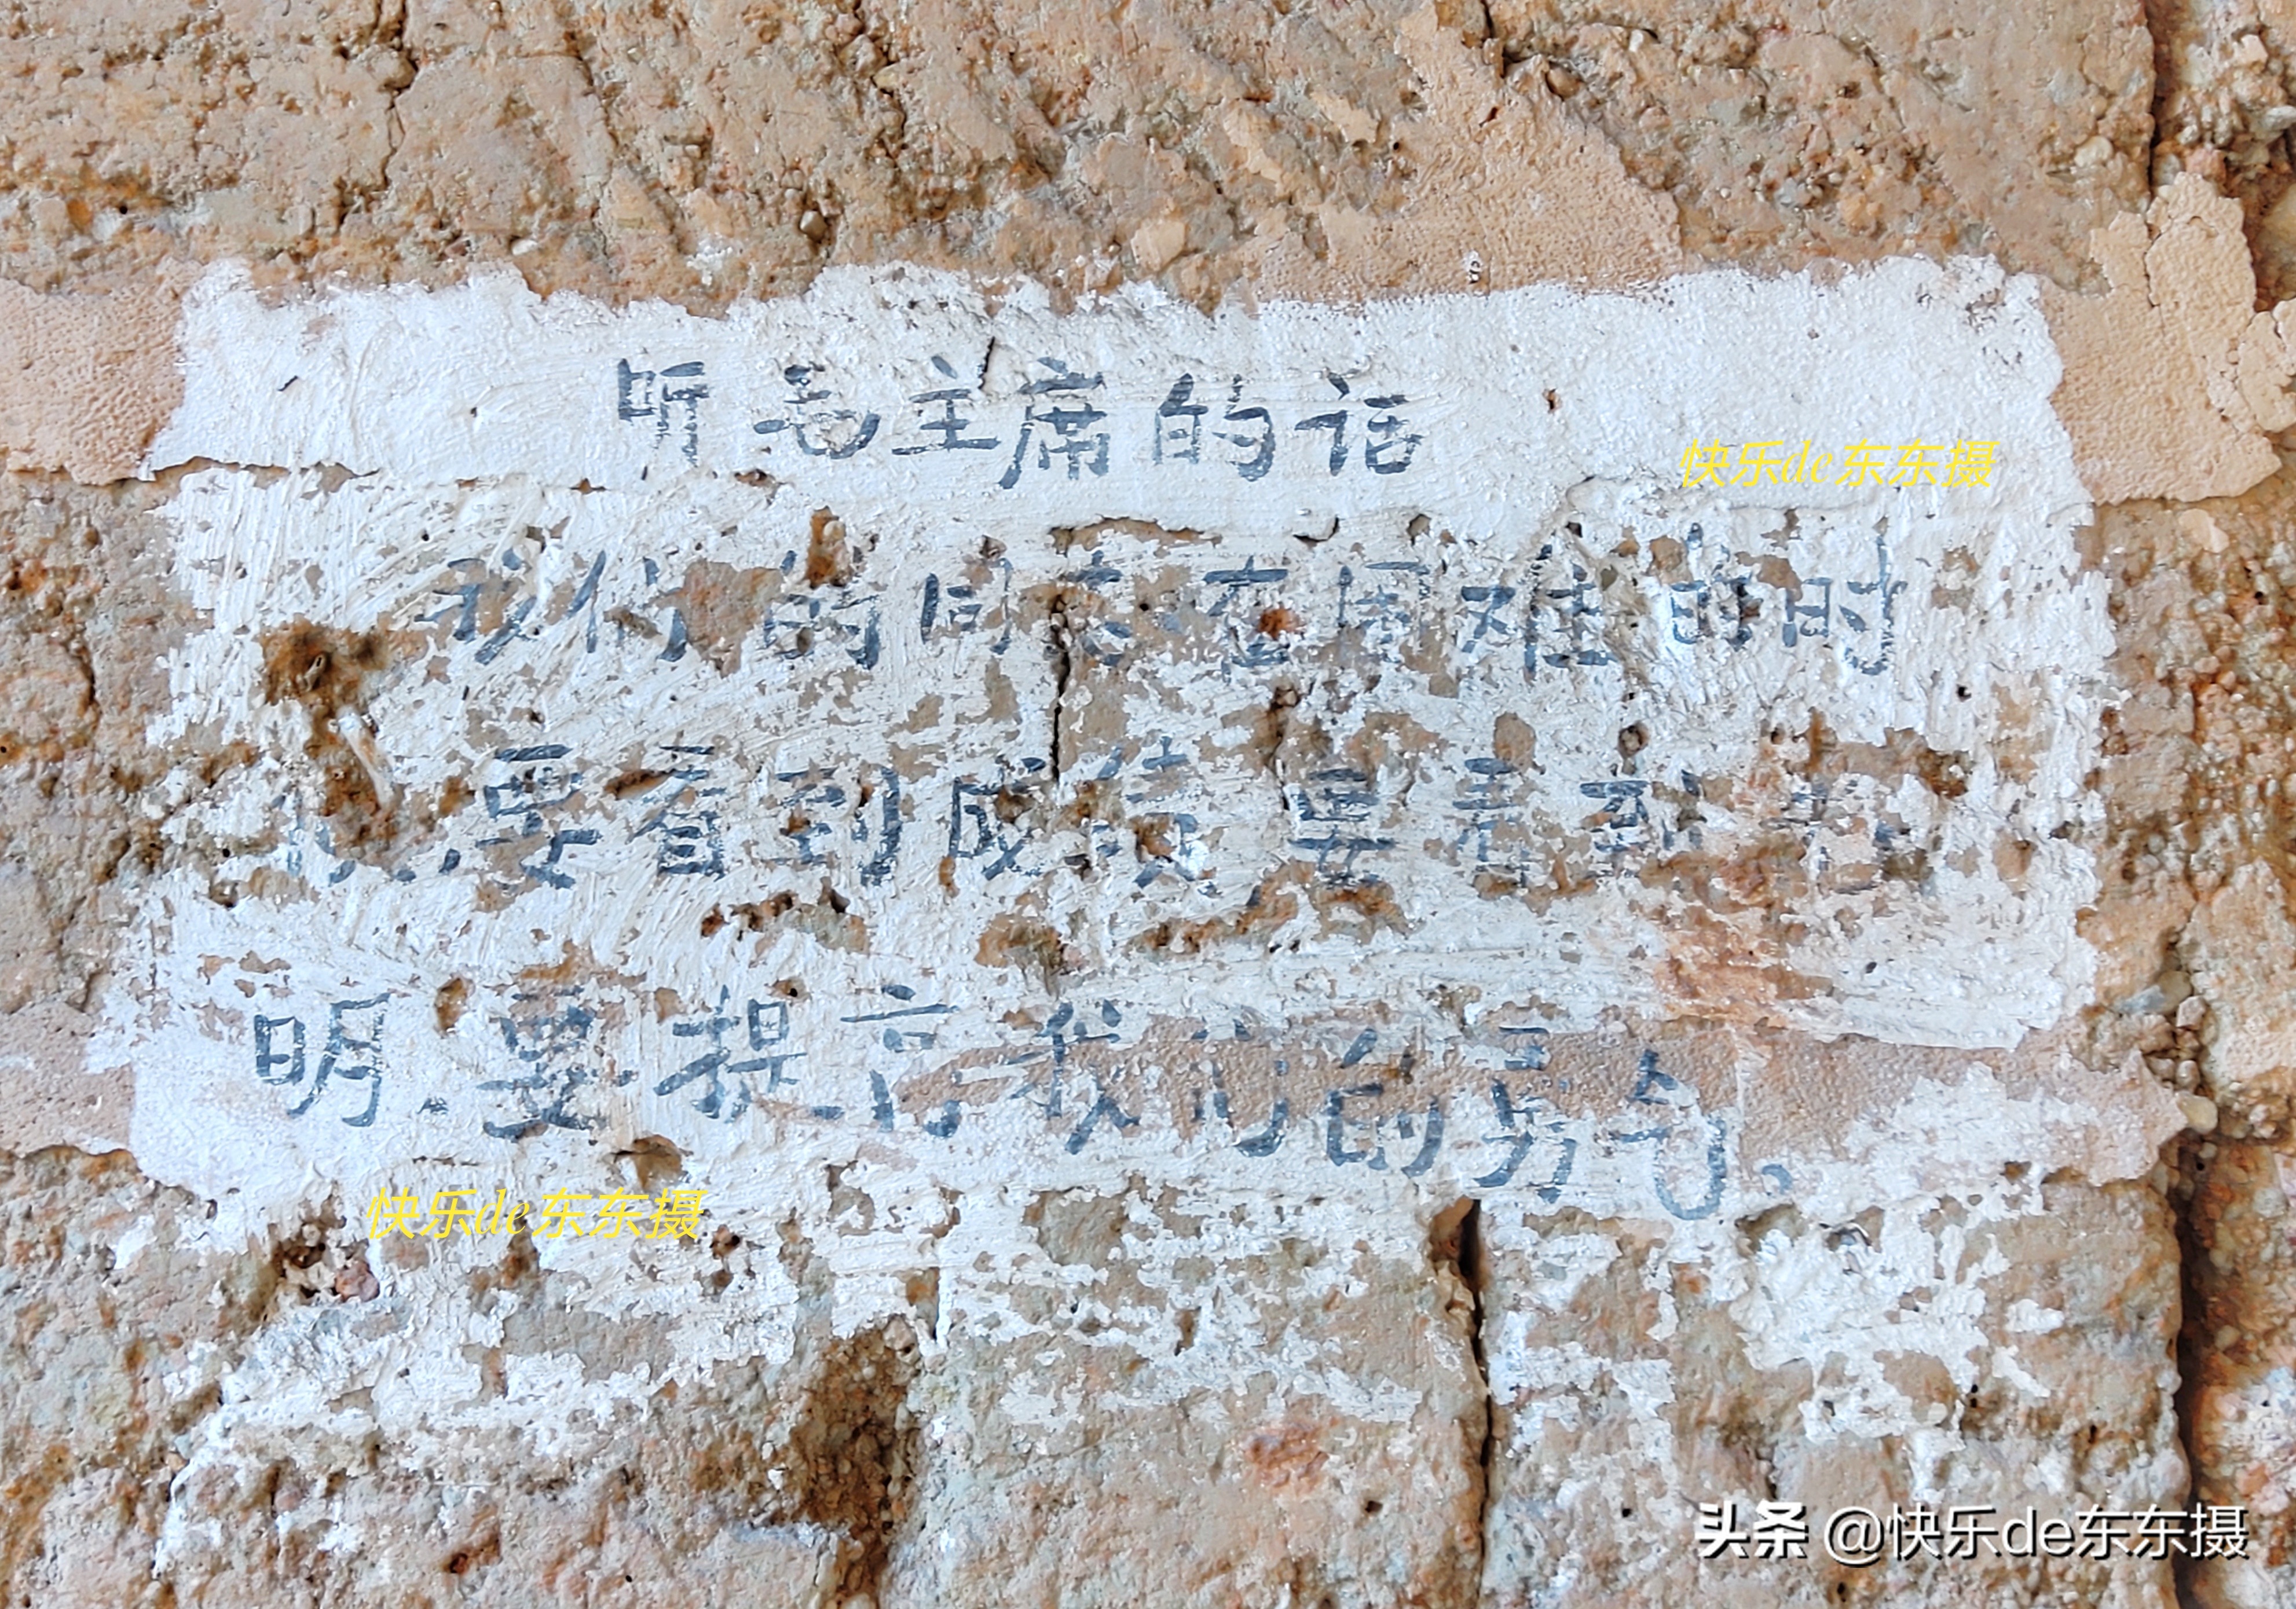 听毛主席的话
快乐de东东摄
我们的同志在困难的时
要看到成绩 要看到
明,要提高我们的勇气。
快乐de东东摄
头条 @快乐de东东摄